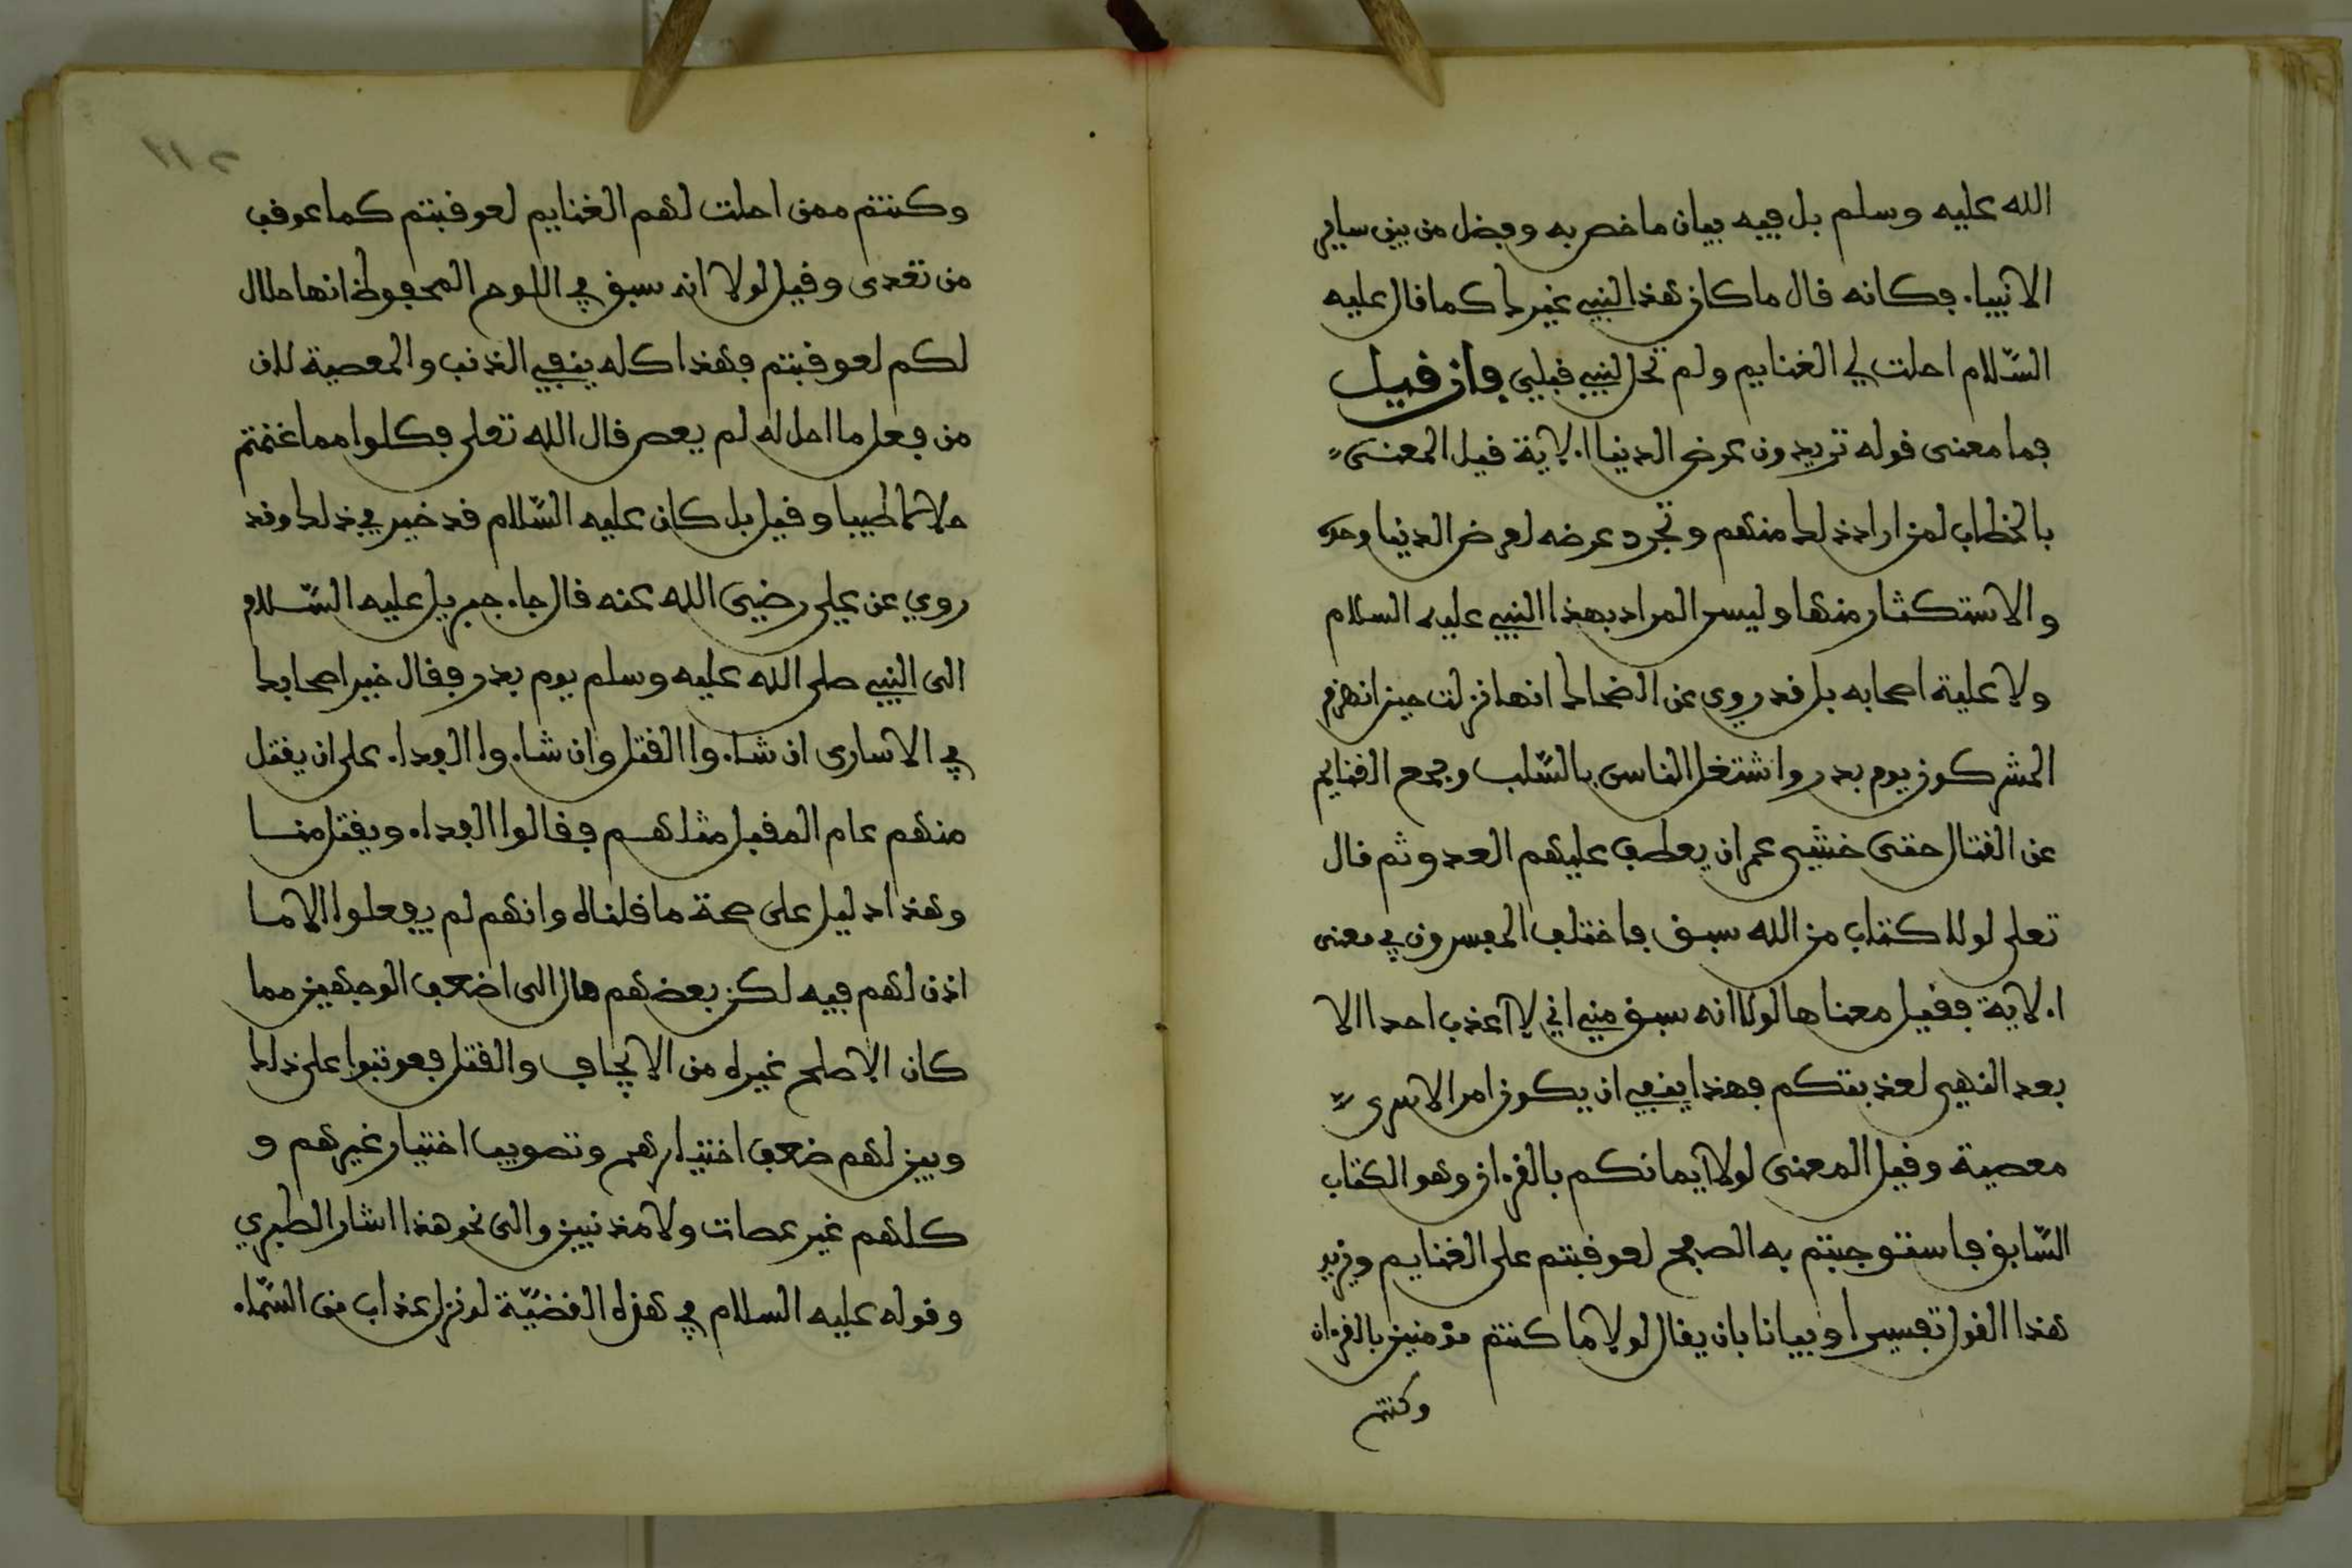 الله عليه وسلم بل فيه بيان ما خص به وفضل من بين ساير
الانبيا. فكانه قال ما كان هذا لنبي غيرك كما قال عليه
السّلام احلت لي الغنايم ولم تحل لنبي قبلي فان قيل
فما معنى قوله تريدون عرض الدنيا الاية قيل المعنى
بالخطاب لمن اراد ذلك منهم وتجرد عرضه لعرض الدنيا وحده
والاستكثار منها وليس المراد بهذا النبي عليه السلام
ولا علية اصحابه بل قد روي عن الضحاك انها نزلت حين انهزم
المشركون يوم بدر واشتغل الناس بالسّلب وجمع الغنايم
عن القتال حتى خشي عمر ان يعطف عليهم العدو ثم قال
تعلى لولا كتاب من الله سبق فاختلف المفسرون في معنى
الاية فقيل معناها لولا انه سبق مني اني لا اعذب احدا الا
بعد النهي لعذبتكم فهذا ينفي ان يكون امر الاسرى
معصية وقيل المعنى لولا ايمانكم بالقرءان وهو الكتاب
السّابق فاستوجبتم به الصفح لعوقبتم على الغنايم ويزيد
هذا القول تفسيرا وبيانا بان يقال لولا ما كنتم مؤمنين بالقرءان
وكنتم
١١٢
وكنتم ممن احلت لهم الغنايم لعوقبتم كما عوقب
من تعدى وقيل لولا انه سبق في اللوح المحفوظ انها حلال
لكم لعوقبتم فهذا كله ينفي الذنب والمعصية لان
من فعل ما احل له لم يعص قال الله تعلى فكلوا مما غنمتم
حلالا طيبا وقيل بل كان عليه السّلام قد خير في ذلك وقد
روي عن علي رضي الله عنه قال جاء جبريل عليه السّلام
الى النبي صلى الله عليه وسلم يوم بدر فقال خير اصحابك
في الاسارى ان شاءوا القتل وان شاءوا الفداء على ان يقتل
منهم عام المقبل مثلهم فقالوا الفداء ويقتل منا
وهذا دليل على صحة ما قلناه وانهم لم يفعلوا الا ما
اذن لهم فيه لكن بعضهم مال الى اضعف الوجهين مما
كان الاصلح غيره من الاثخان والقتل فعوتبوا على ذلك
وبين لهم ضعف اختيارهم وتصويب اختيار غيرهم و
كلهم غير عصات ولا مذنبين والى نحو هذا اشار الطبري
وقوله عليه السلام في هذه القضيّة لو نزل عذاب من السّماء